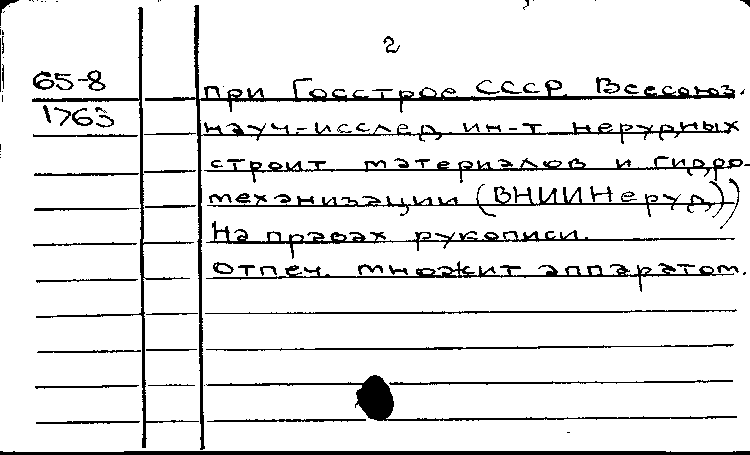 2
65-8 при Госстрое СССР. Всесоюз.
1763 науч.-исслед. ин-т нерудных
строит. материалов и гидро-
механизации (ВНИИНеруд))
На правах рукописи.
Отпеч. множит. аппаратом.